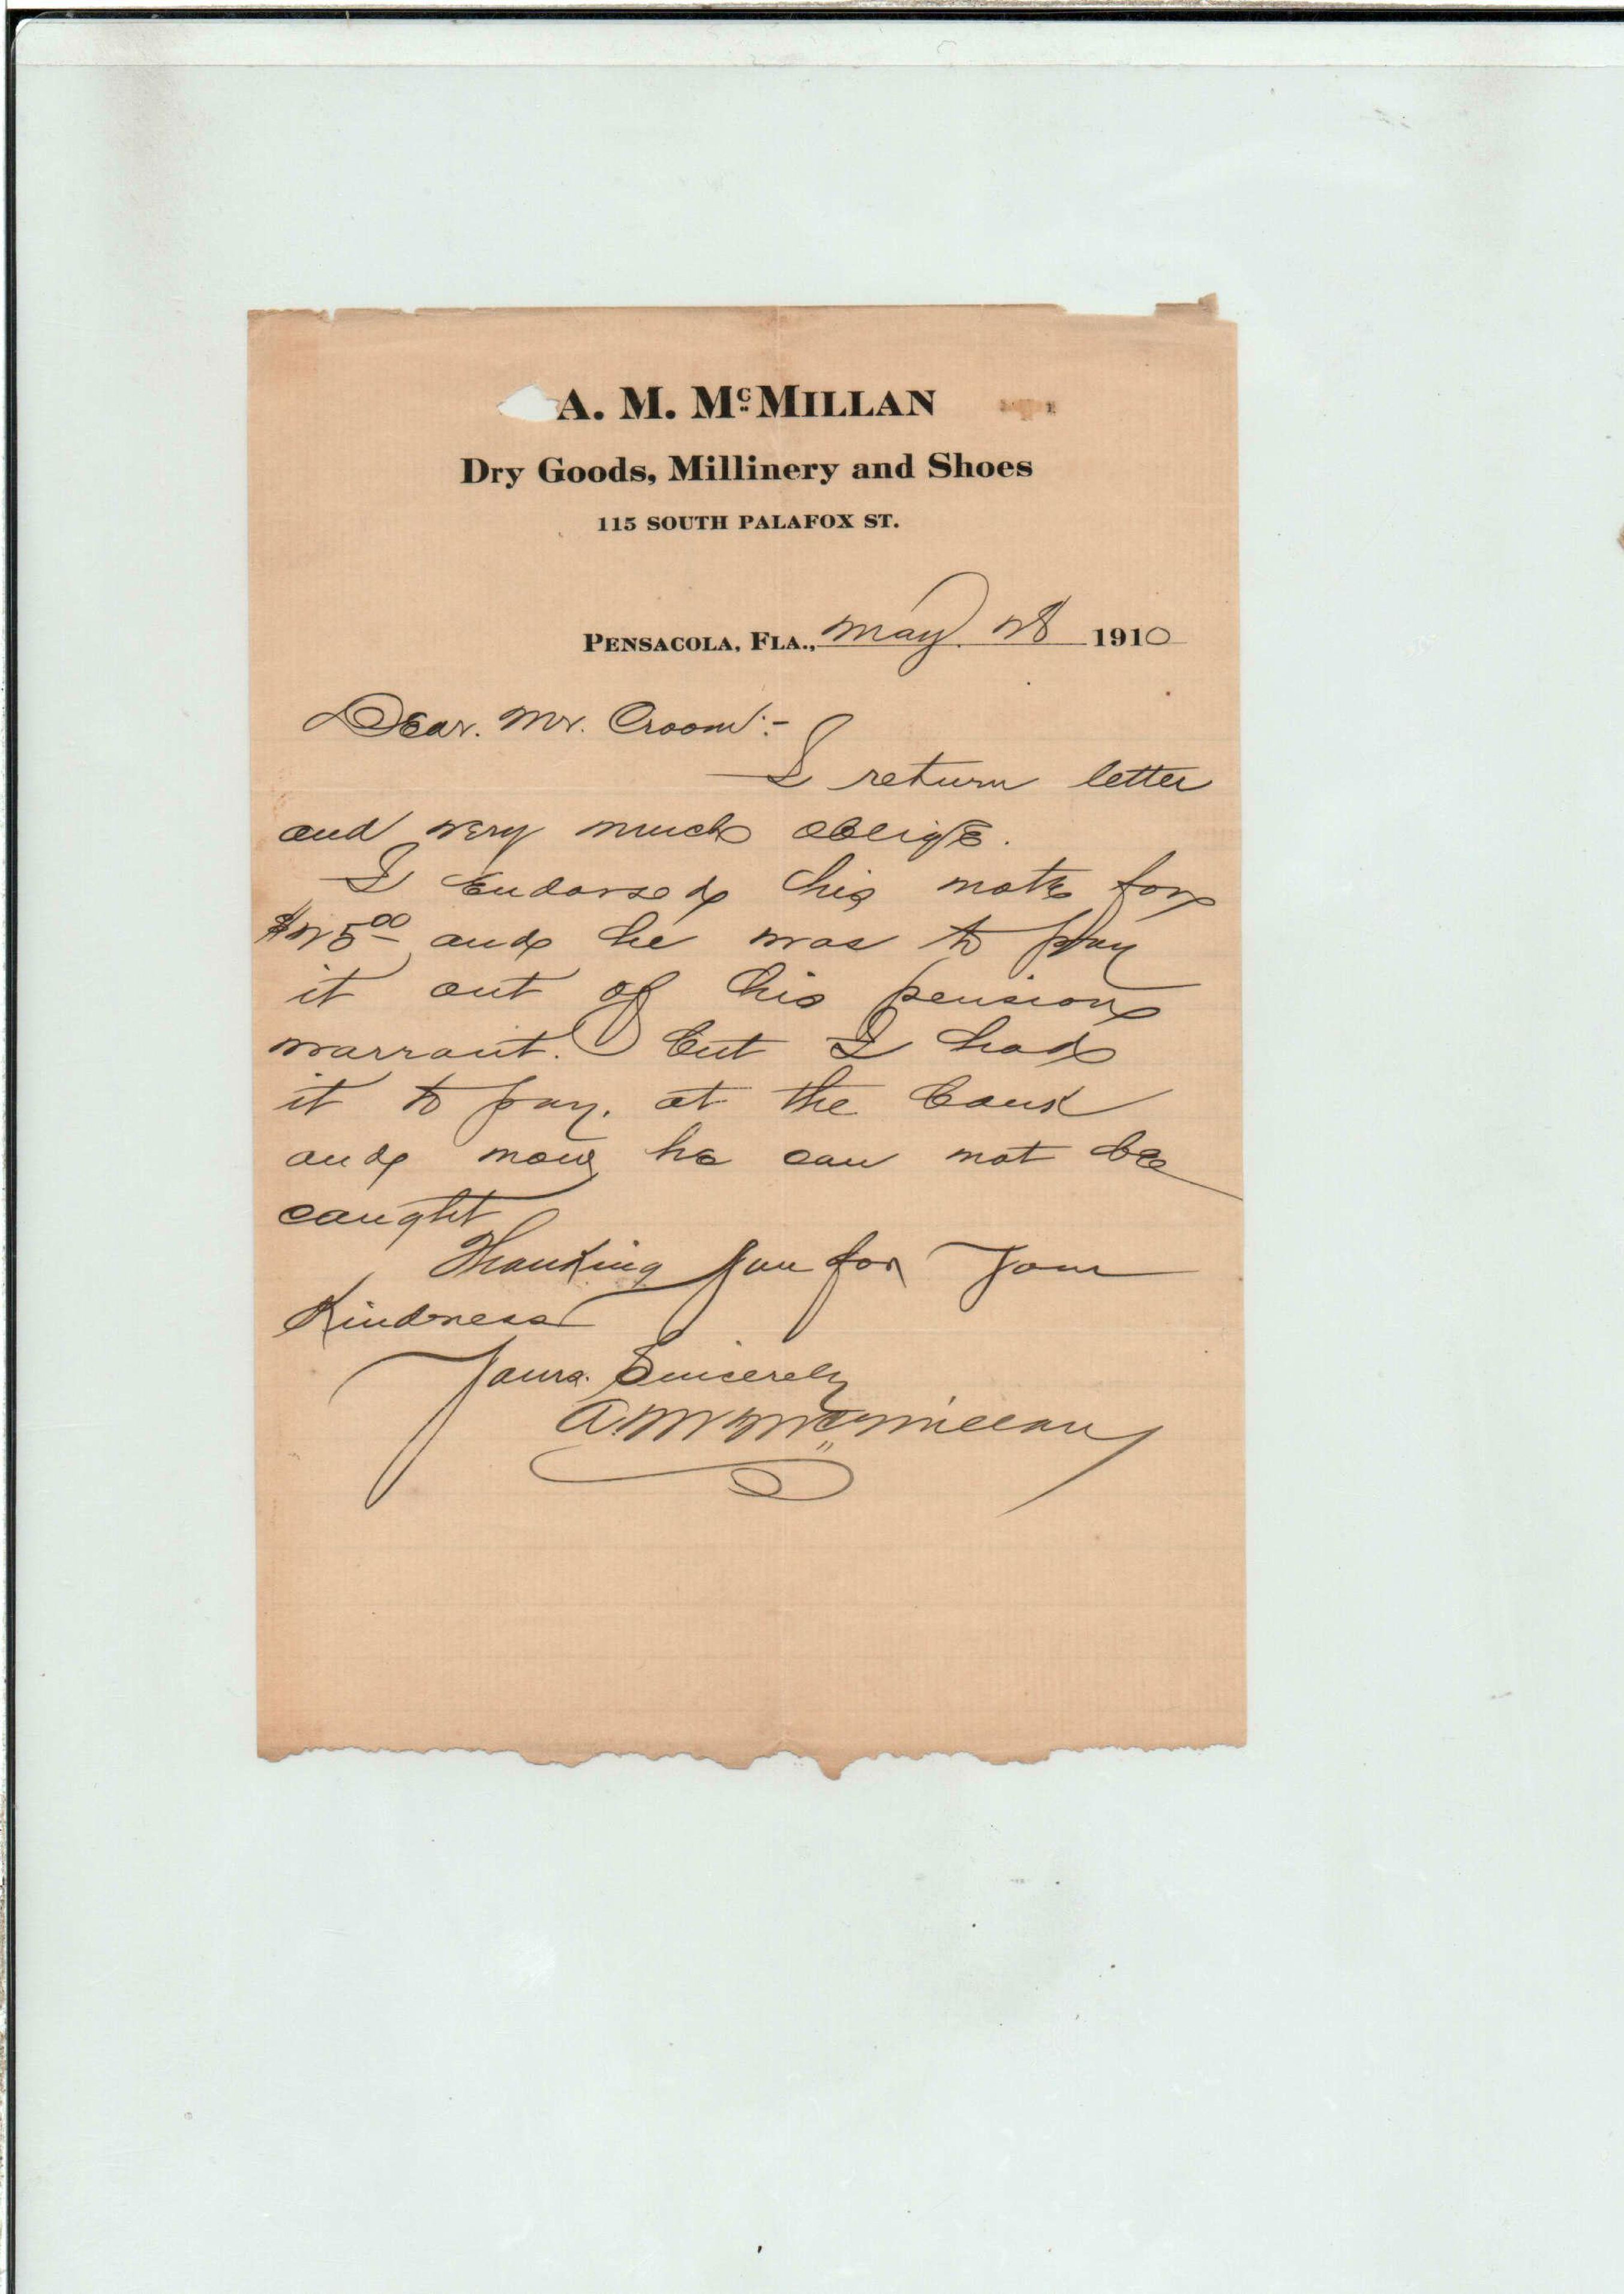 A. M. McMILLAN
Dry Goods, Millinery and Shoes
115 SOUTH PALAFOX ST.
PENSACOLA, FLA., May. 28 1910
Dear. Mr. Croom:-
I return letter
and very much oblige.
I Endorsed his note for
$25.00 and he was to pay
it out of his pension
warrant. But I had
it to pay. at the bank
and now he can not be
caught
Thanking you for your
Kindness
Yours. Sincerely
A. M. McMillan